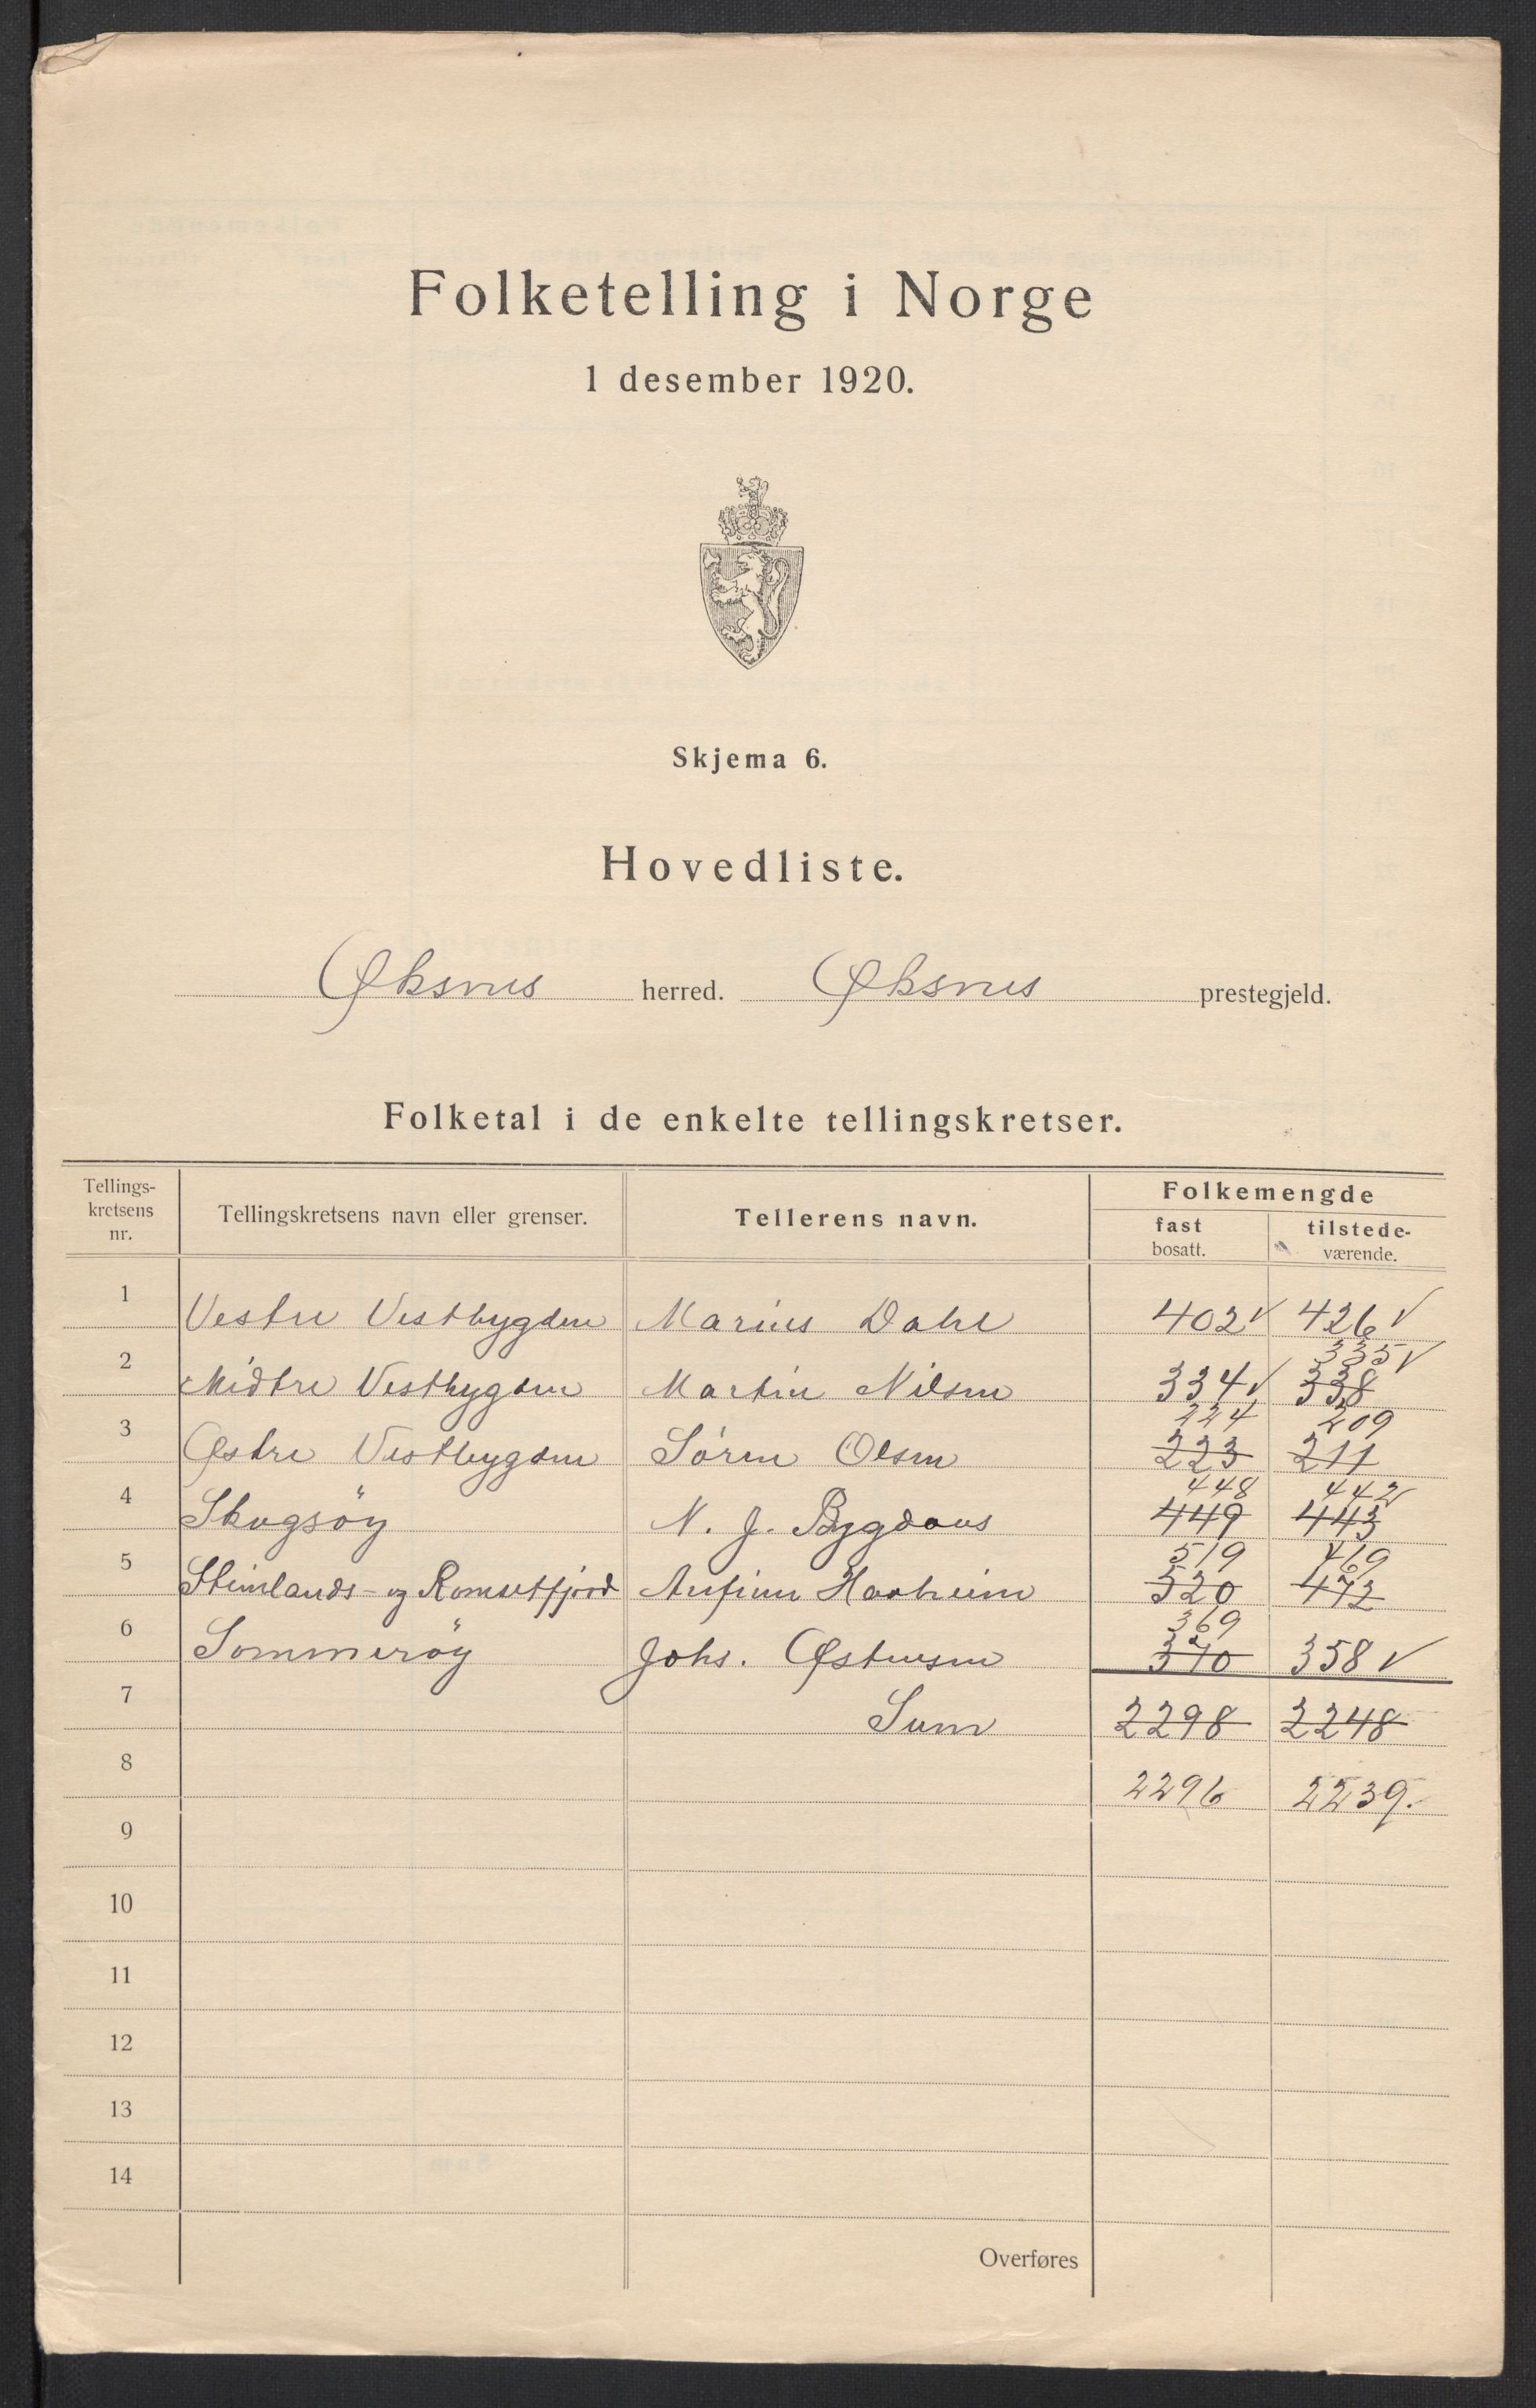 Folketelling i Norge
1 desember 1920.
Skjema 6.
Hovedliste.
Øksnes herred. Øksnes prestegjeld.
Folketal i de enkelte tellingskretser.
Tellings-
kretsens
nr.
Tellingskretsens navn eller grenser.
Tellerens navn.
Folkemengde
fast
bosatt.
tilstede-
værende.
1 Vestre Vestbygden Marius Dahl 402 ✓ 426 ✓
335 ✓
2 Midtre Vestbygden Martin Nilsen 334 ✓ 338
224 209
3 Østre Vestbygden Søren Olsen 223 211
448 442
4 Skogsöy N. J. Bygdnes 449 443
519 469
5 Steinlands- og Romsetfjord Anfinn Haaheim 520 472
369
6 Sommeröy Johs. Østensen 370 358 ✓
7 Sum 2298 2248
8 2296 2239.
9
10
11
12
13
14
Overføres